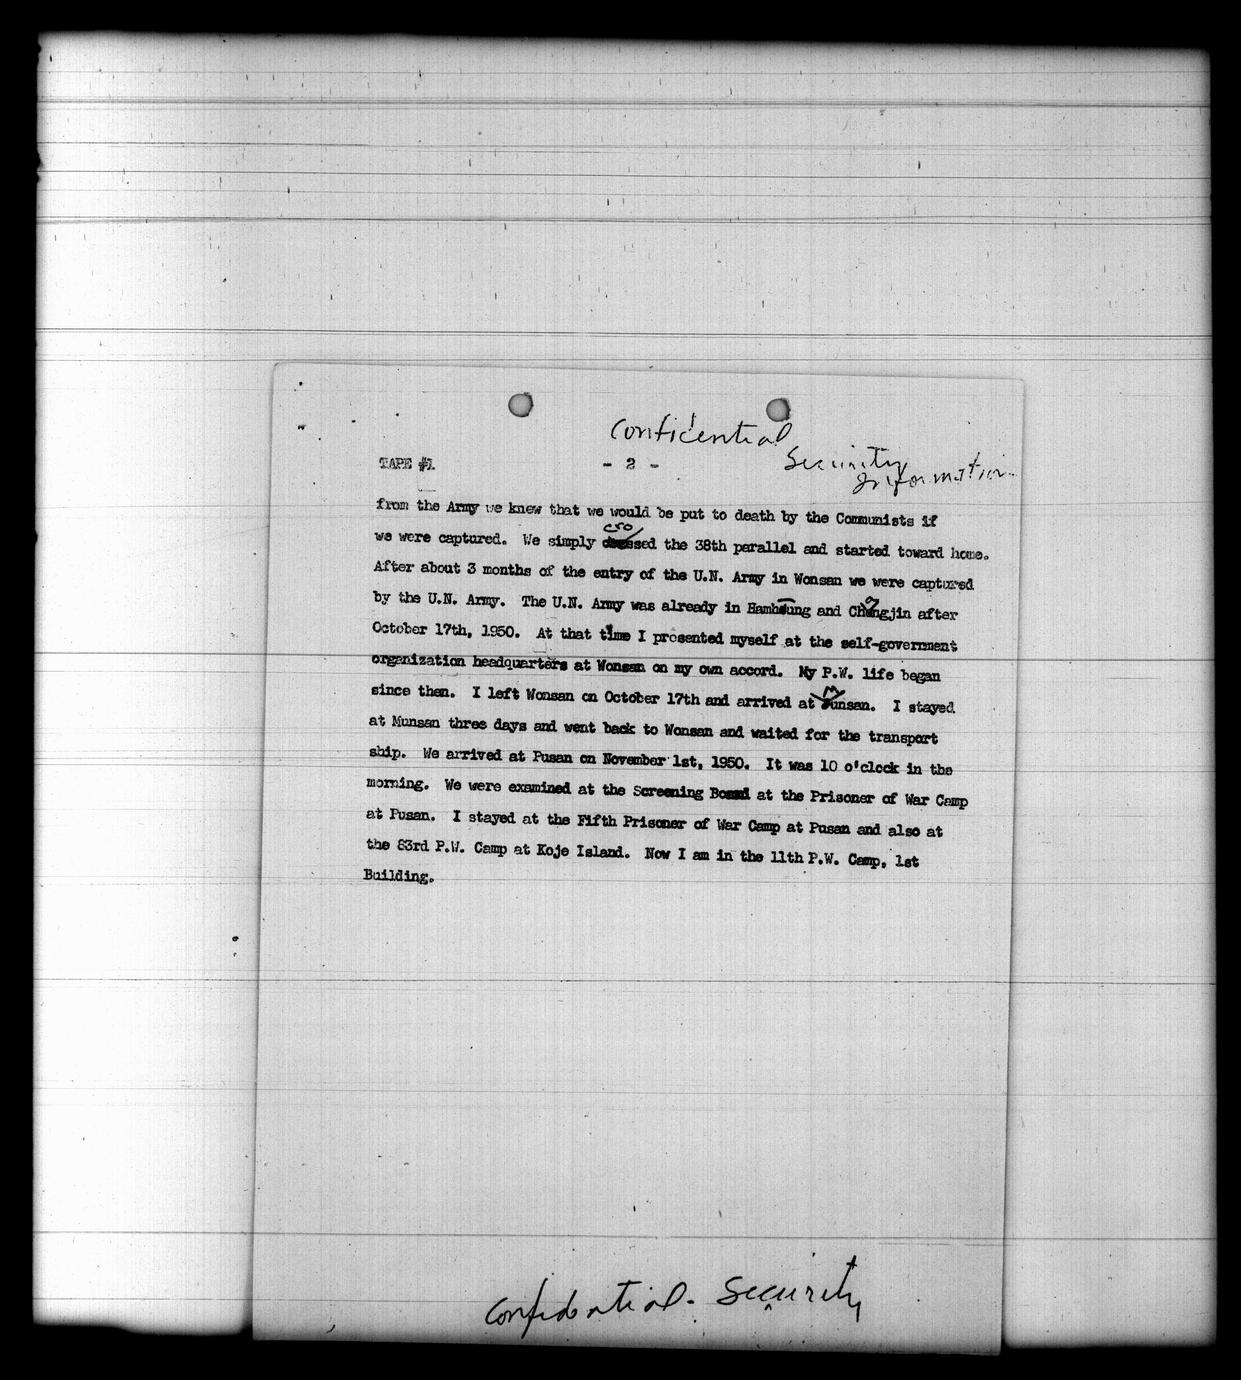 Confidential
Security
Information
TAPE #1
- 2 -
from the Army we knew that we would be put to death by the Communists if
we were captured. We simply crossed the 38th parallel and started toward home.
After about 3 months of the entry of the U.N. Army in Wonsan we were captured
by the U.N. Army. The U.N. Army was already in Hamhung and Chongjin after
October 17th, 1950. At that time I presented myself at the self-government
organization headquarters at Wonsan on my own accord. My P.W. life began
since then. I left Wonsan on October 17th and arrived at Munsan. I stayed
at Munsan three days and went back to Wonsan and waited for the transport
ship. We arrived at Pusan on November 1st, 1950. It was 10 o'clock in the
morning. We were examined at the Screening Board at the Prisoner of War Camp
at Pusan. I stayed at the Fifth Prisoner of War Camp at Pusan and also at
the 83rd P.W. Camp at Koje Island. Now I am in the 11th P.W. Camp, 1st
Building.
Confidential - Security